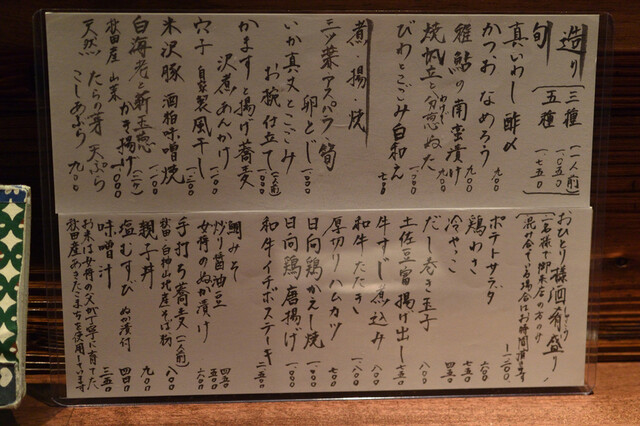 造り
三種(一人前)一〇五〇
五種 一、七五〇
旬
真いわし 酢〆 九〇〇
かつお なめろう 九〇〇
稚鮎の南蛮漬け 九〇〇
焼帆立と分葱ぬた 九〇〇
わけぎ
びわとごごみ白和え 七〇〇
煮・揚・焼
三ツ葉アスパラ 筍
卵とじ 一、〇〇〇
いか真丈とこごみ
お椀仕立て(一人前)
かますと揚げ蕎麦
沢煮あんかけ 一、〇〇〇
穴子 自家製風干し 一、二〇〇
米沢豚 酒粕味噌焼 一、三〇〇
白海老と新玉葱
かき揚げ(二ヶ) 一、〇〇〇
秋田産 山菜
天然 たらの芽 天ぷら
こしあぶら 九〇〇
おひとり様酒肴盛り 一、二〇〇
しゅこう
(一名様で御来店の方のみ
混み合ってる場合はお時間頂きます)
ポテトサラダ 六〇〇
鶏わさ 七五〇
冷やっこ 四五〇
だし巻き玉子 八〇〇
土佐豆富揚げ出し 七五〇
牛すじの煮込み 八〇〇
和牛たたき 一、八〇〇
厚切りハムカツ 七〇〇
日向鶏かえし焼 一、〇〇〇
日向鶏唐揚げ 一、〇〇〇
和牛イチボステーキ 二、五〇〇
鯛みそ 四五〇
炒り醤油豆 五〇〇
女将のぬか漬け 六〇〇
手打ち蕎麦(一人前) 八〇〇
秋田・白神山地産そば粉
親子丼 九〇〇
塩むすび ぬか漬付 四〇〇
味噌汁 三五〇
お米は女将の父が丁寧に育てた、
秋田産あきたこまちを使用しています